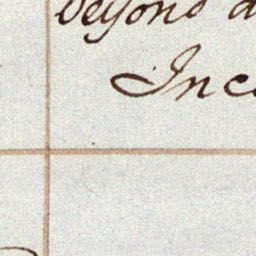 beyond a
Inc